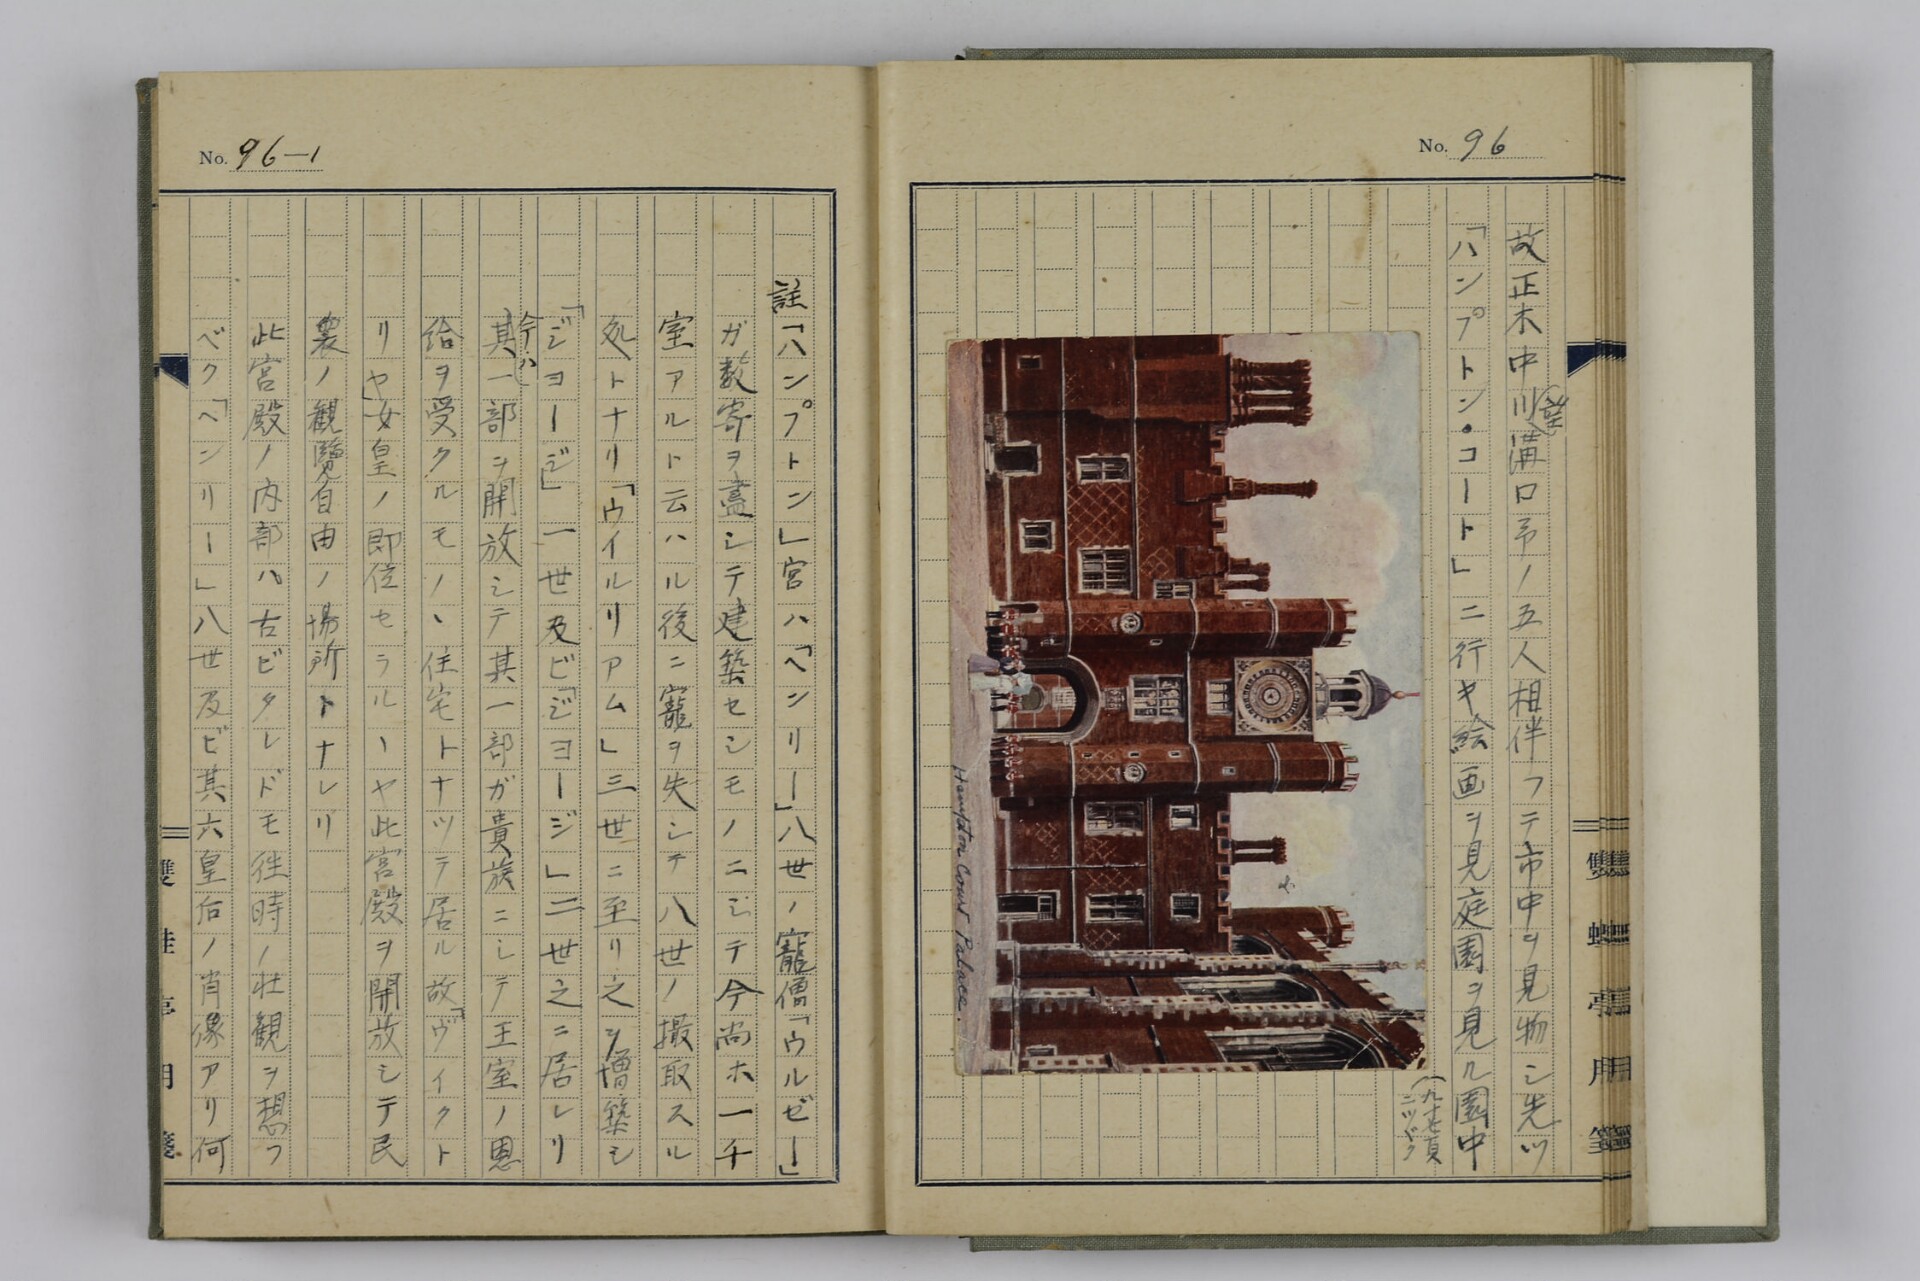 No. 96
故正木中川(望)溝口予ノ五人相伴フテ市中ヲ見物シ先ヅ
「ハンプトン・コート」ニ行キ絵画ヲ見庭園ヲ見ル園中
(九十七頁
ニツヾク
Hampton Court Palace.
雙桂亭用箋
No. 96-1
註「ハンプトン」宮ハ「ヘンリー」八世ノ寵僧「ウルゼー」
ガ数寄ヲ盡シテ建築セシモノニシテ今尚ホ一千
室アルト云ハル後ニ寵ヲ失シテ八世ノ撮取スル
処トナリ「ウイルリアム」三世ニ至リ之ヲ増築シ
「ジヨージ」一世及ビ「ジヨージ」二世之ニ居レリ
今ハ
其一部ヲ開放シテ其一部ガ貴族ニシテ王室ノ恩
給ヲ受クルモノヽ住宅トナツテ居ル故「ヴイクト
リヤ」女皇ノ即位セラルヽヤ此宮殿ヲ開放シテ民
衆ノ観覧自由ノ場所トナレリ
此宮殿ノ内部ハ古ビタレドモ往時ノ壮観ヲ想フ
ベク「ヘンリー」八世及ビ其六皇后ノ肖像アリ何
雙桂亭用箋